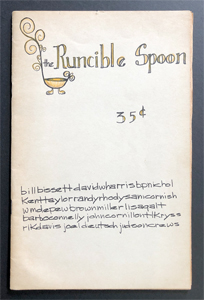 the Runcible Spoon
35¢
bill bissett david w harris bp nichol
Kent taylor randy rhody sam cornish
wm depew brown miller lisa galt
barbo connelly john cornillon tl kryss
rik davis joel deutsch judson crews